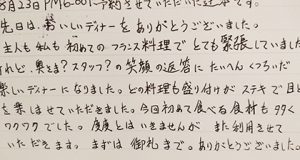 8月23日PM6:00に予約させていただいた近本です。
先日は、おいしいディナーをありがとうございました。
主人も私も初めてのフランス料理でとても緊張していました
けれど、奥さま?スタッフ?の笑顔の返答にたいへんくつろいだ
楽しいディナーになりました。どの料理も盛り付けがステキで目と
を楽しませていただきました。今回初めて食べる食材も多く
ワクワクでした。度度とはいきませんがまた利用させて
いただきます。まずは御礼まで。ありがとうございました。